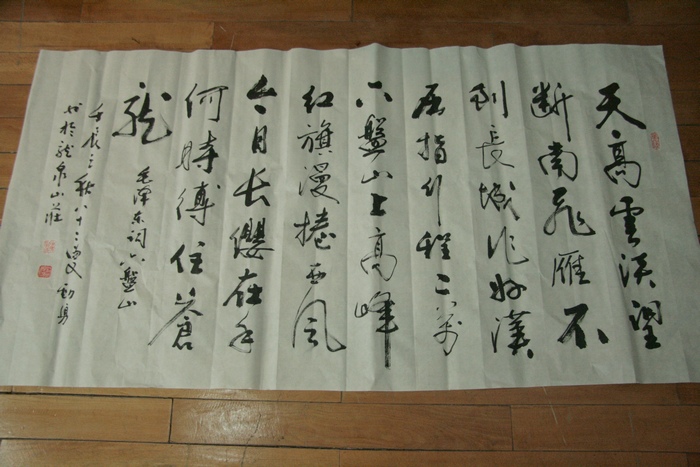 天高雲淡望
斷南飛雁不
到長城非好漢
屈指行程二萬
六盤山上高峰
紅旗漫捲西風
今日長纓在手
何時縛住蒼
龍
毛澤東詞六盤山
壬辰之秋八十三叟勁
书於龍泉山莊